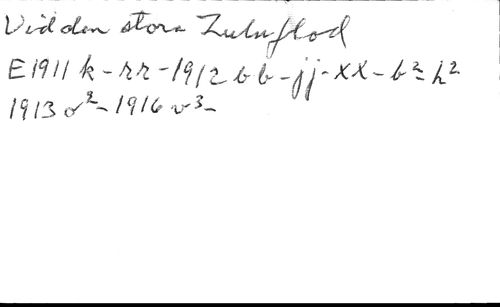 Vid den stora Zuluflod
E 1911 k - rr - 1912 bb - jj - xx - b² - h²
1913 o² - 1916 v³ -